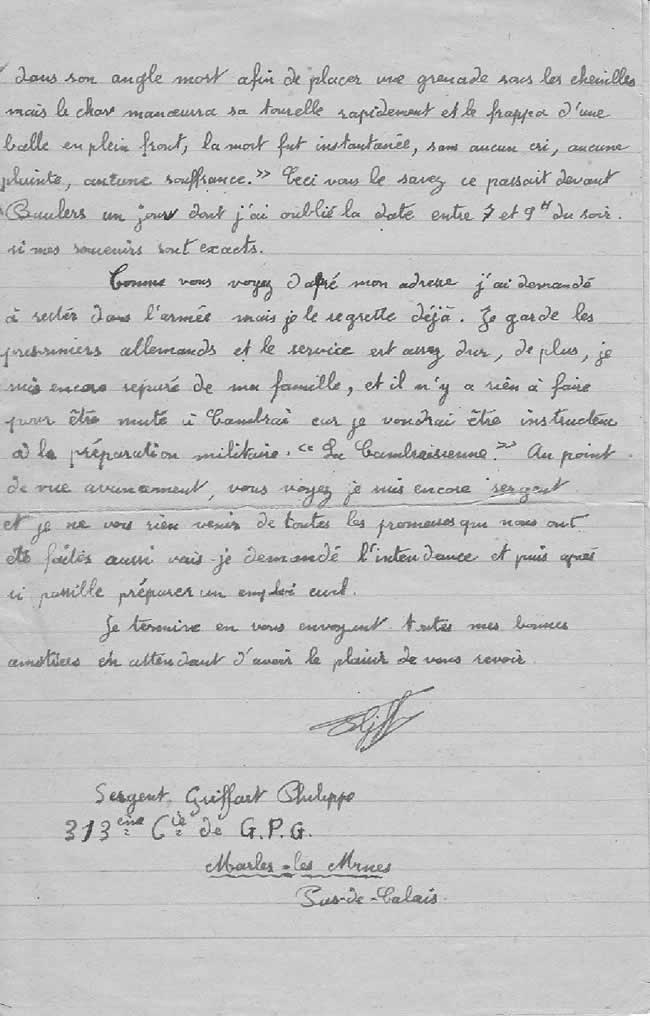 dans son angle mort afin de placer une grenade sous les chenilles
mais le char manœuvra sa tourelle rapidement et le frappa d'une
balle en plein front, la mort fut instantanée, sans aucun cri, aucune
plainte, aucune souffrance." Ceci vous le savez ce passait devant
Baulers un jour dont j'ai oublié la date entre 7 et 9H du soir.
si mes souvenirs sont exacts.
Comme vous voyez d'apré mon adresse j'ai demandé
à rester dans l'armée mais je le regrette déjà. Je garde les
prisonniers allemands et le service est assez dur, de plus, je
suis encore séparé de ma famille, et il n'y a rien à faire
pour être muté à Cambrai car je voudrai être instructeur
à la préparation militaire. "La Cambraisienne." Au point
de vue avancement, vous voyez je suis encore sergent
et je ne vois rien venir de toutes les promesses qui nous ont
été faites aussi vais-je demandé l'intendance et puis après
si possible préparer un emploi civil.
Je termine en vous envoyant toutes mes bonnes
amitiées en attendant d'avoir le plaisir de vous revoir.
Sergent Griffart Philippe
313ème Cie de G.P.G.
Marles-les Mines
Pas-de-Calais.